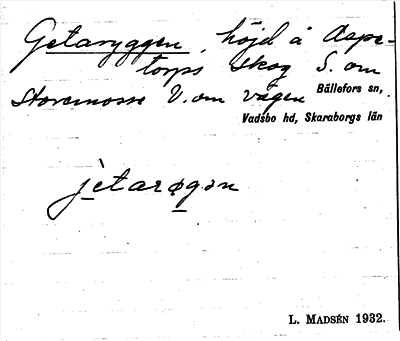 Getaryggen, höjd å Aspe-
torps skog S. om
Storemosse V. om vägen Bällefors sn,
Vadsbo hd, Skaraborgs län
jètarøgən
L. MADSÉN 1932.